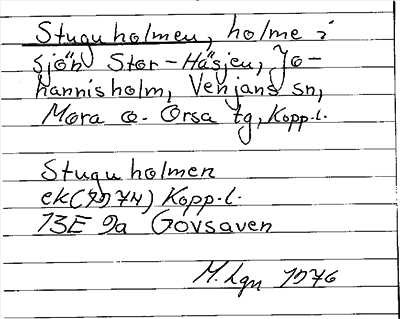 Stuguholmen, holme i
sjön Stor-Häsjen, Jo-
hannisholm, Venjans sn,
Mora o. Orsa tg, Kopp.l.
Stuguholmen
ek (1974) Kopp.l.
13E 9a Gövsaven
M. Lgn 1976